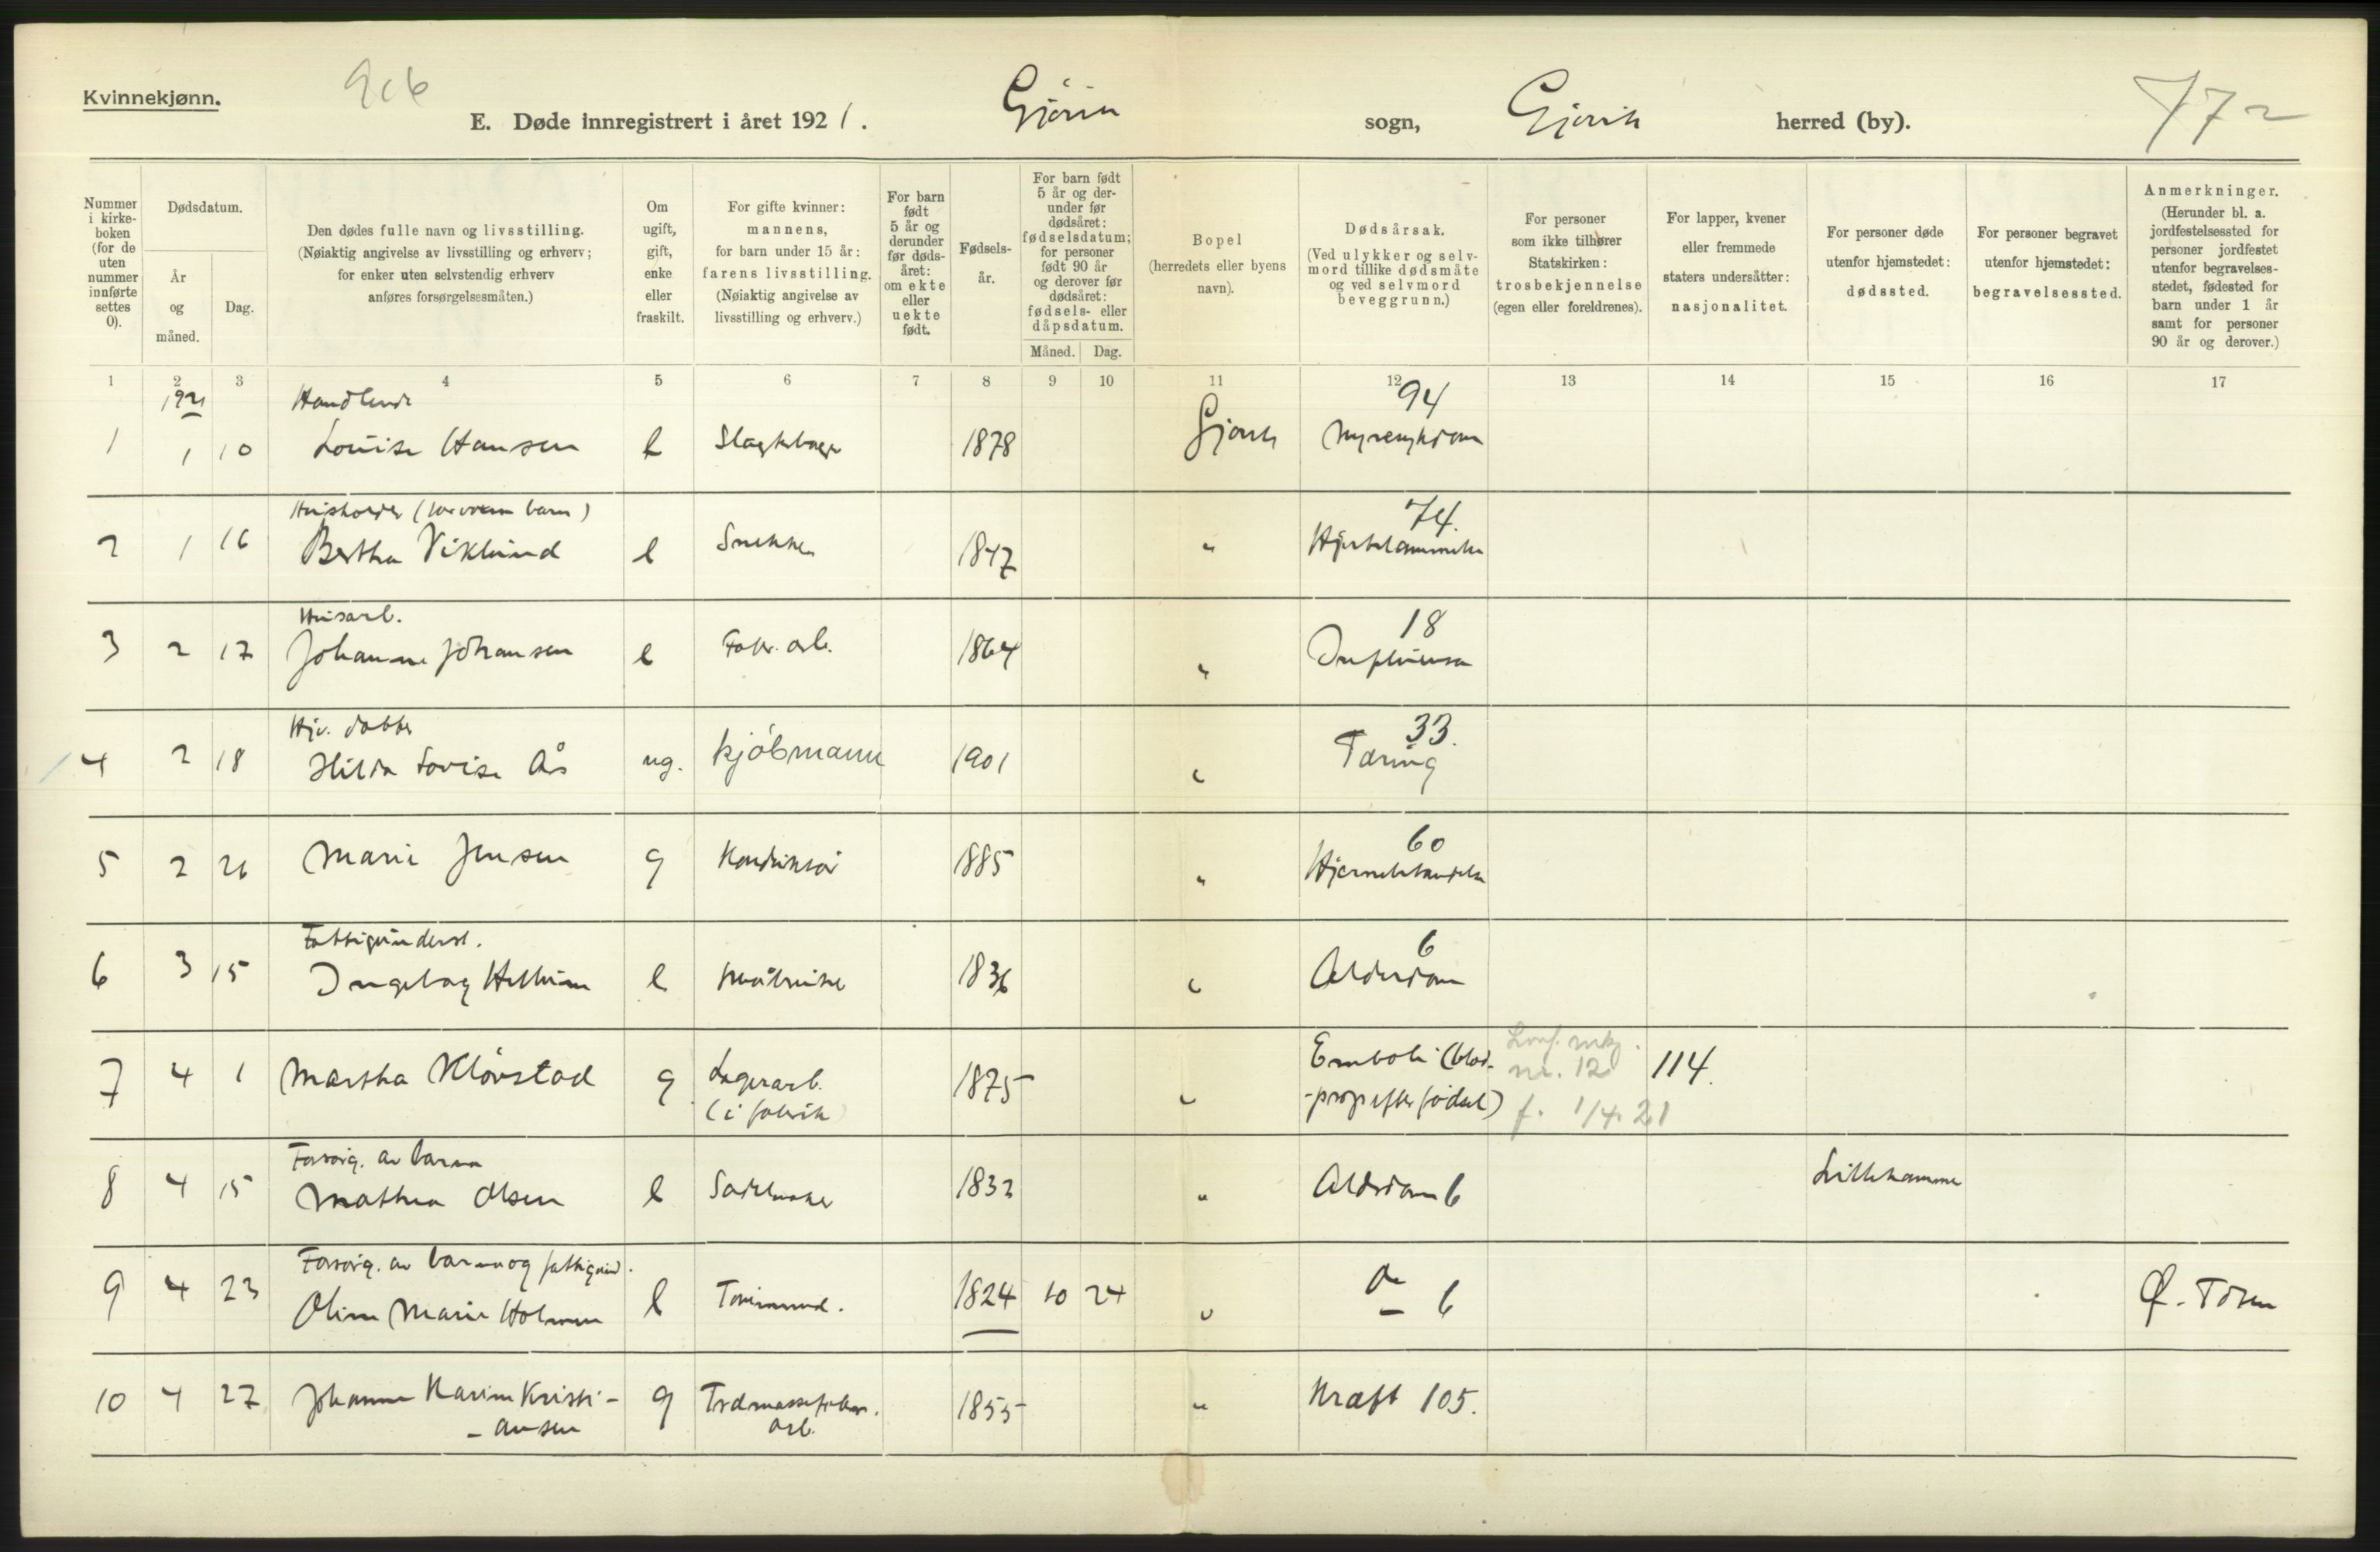 Kvinnekjønn.
906
E. Døde innregistrert i året 1921.
Gjövik sogn, Gjövik herred (by).
472
Nummer i kirkeboken (for de uten nummer innførte settes 0).
Dødsdatum.
År og måned.
Dag.
Den dødes fulle navn og livsstilling.
(Nøiaktig angivelse av livsstilling og erhverv;
for enker uten selvstendig erhverv
anføres forsørgelsesmåten.)
Om ugift, gift, enke eller fraskilt.
For gifte kvinner:
mannens,
for barn under 15 år:
farens livsstilling.
(Nøiaktig angivelse av
livsstilling og erhverv.)
For barn født 5 år og derunder før dødsåret: om ekte eller uekte født.
Fødselsår.
For barn født 5 år og derunder før dødsåret: fødselsdatum; for personer født 90 år og derover før dødsåret: fødsels- eller dåpsdatum.
Måned. Dag.
Bopel
(herredets eller byens
navn).
Dødsårsak.
(Ved ulykker og selv-
mord tillike dødsmåte
og ved selvmord
beveggrunn.)
For personer
som ikke tilhører
Statskirken:
trosbekjennelse
(egen eller foreldrenes).
For lapper, kvener
eller fremmede
staters undersåtter:
nasjonalitet.
For personer døde
utenfor hjemstedet:
dødssted.
For personer begravet
utenfor hjemstedet:
begravelsessted.
Anmerkninger.
(Herunder bl. a.
jordfestelsessted for
personer jordfestet
utenfor begravelses-
stedet, fødested for
barn under 1 år
samt for personer
90 år og derover.)
1 2 3 4 5 6 7 8 9 10 11 12 13 14 15 16 17
1921 Handlende 94
1 1 10 Louise Hansen e 1878 Gjövik Nyresykdom
Husholder ( barn) 74.
2 1 16 Bertha Viklund e Snekker 1847 " Hjertelammelse
Husarb. 18
3 2 17 Johanne Johansen e Fabr. arb. 1864 " Influensa
Hjv. datter 33.
4 2 18 Hilda Lovise Ås ug. kjöbmann 1901 " Tæring
60
5 2 26 Marie Jensen g Konduktör 1885 " Hjernebetændelse
Fattigunderst. 6
6 3 15 Ingeborg e Småbruker 1836 " Alderdom
7 4 1 Martha Klövstad g Lagerarb. 1875 " Emboli (blod- 114.
(i fabrik) -prop efter födsel)
nr. 12
f. 1/4. 21
Forsörg. av barn
8 4 15 Mathea Olsen e Sadelmaker 1832 " Alderdom 6 Lillehammer
Forsörg. av barn og fattigund.
9 4 23 Oline Marie Holmen e 1824 10 24 " do 6 Ø. Toten
10 4 27 Johanne Karine Kristi- g Tremassefabr. 1855 " Kræft 105.
- ansen arb.